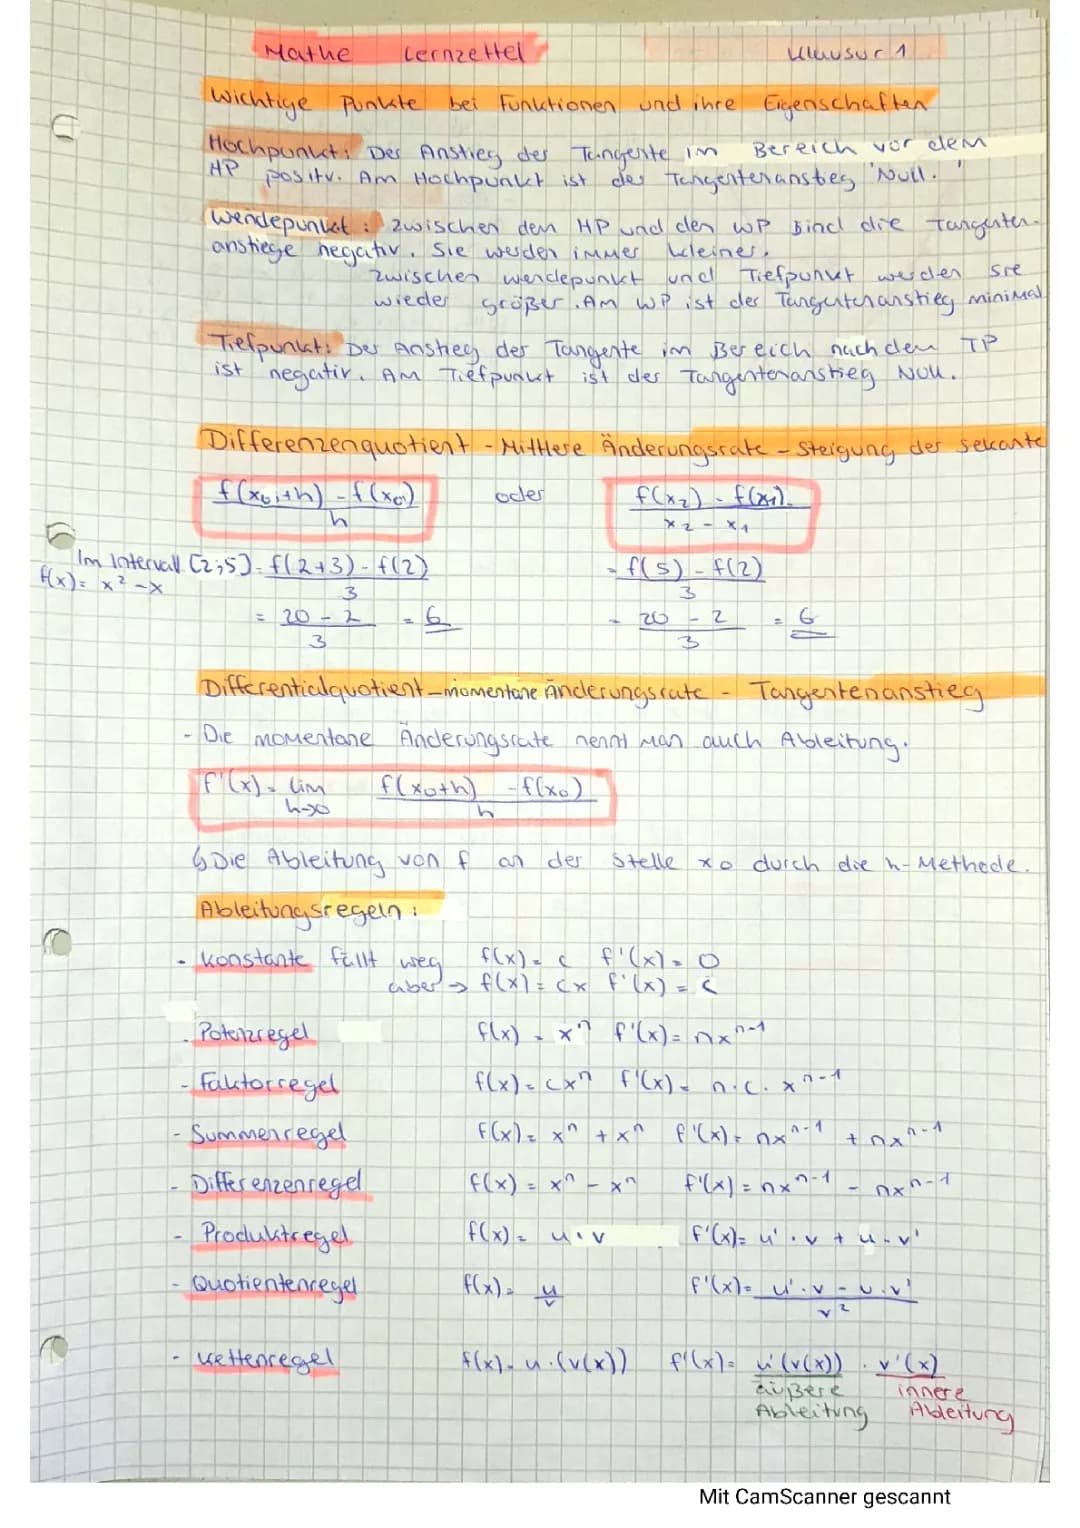 Mathe Lernzettel Klausur 1
Wichtige Punkte bei Funktionen und ihre Eigenschaften
Hochpunkt: Der Anstieg der Tangente im Bereich vor dem
HP positv. Am Hochpunkt ist der Tangentenanstieg Null.
Wendepunkt: Zwischen dem HP und den WP sind die Tangenten-
anstiege negativ. Sie werden immer kleiner.
Zwischen Wendepunkt und Tiefpunkt werden sie
wieder größer. Am WP ist der Tangentenanstieg minimal
Tiefpunkt: Der Anstieg der Tangente im Bereich nach dem TP
ist negativ. Am Tiefpunkt ist der Tangentenanstieg Null.
Differenzenquotient - Mittlere Änderungsrate - Steigung der Sekante
f(x₀+h) - f(x₀) / h oder f(x₂) - f(x₁) / x₂ - x₁
Im Intervall [2;5] = f(2+3) - f(2) / 3 = f(5) - f(2) / 3
f(x) = x² - x
= 20 - 2 / 3 = 6 = 20 - 2 / 3 = 6
Differentialquotient - momentane Änderungsrate - Tangentenanstieg
- Die momentane Änderungsrate nennt man auch Ableitung.
f'(x) = lim h→0 f(x₀+h) - f(x₀) / h
↳ Die Ableitung von f an der Stelle x₀ durch die h-Methode.
Ableitungsregeln:
- Konstante fällt weg f(x) = c f'(x) = 0
aber → f(x) = cx f'(x) = c
- Potenzregel f(x) = xⁿ f'(x) = nxⁿ⁻¹
- Faktorregel f(x) = cxⁿ f'(x) = n·c·xⁿ⁻¹
- Summenregel f(x) = xⁿ + xⁿ f'(x) = nxⁿ⁻¹ + nxⁿ⁻¹
- Differenzenregel f(x) = xⁿ - xⁿ f'(x) = nxⁿ⁻¹ - nxⁿ⁻¹
- Produktregel f(x) = u·v f'(x) = u'·v + u·v'
- Quotientenregel f(x) = u / v f'(x) = u'·v - u·v' / v²
- Kettenregel f(x) = u·(v(x)) f'(x) = u'(v(x)) · v'(x)
äußere innere
Ableitung Ableitung
Mit CamScanner gescannt